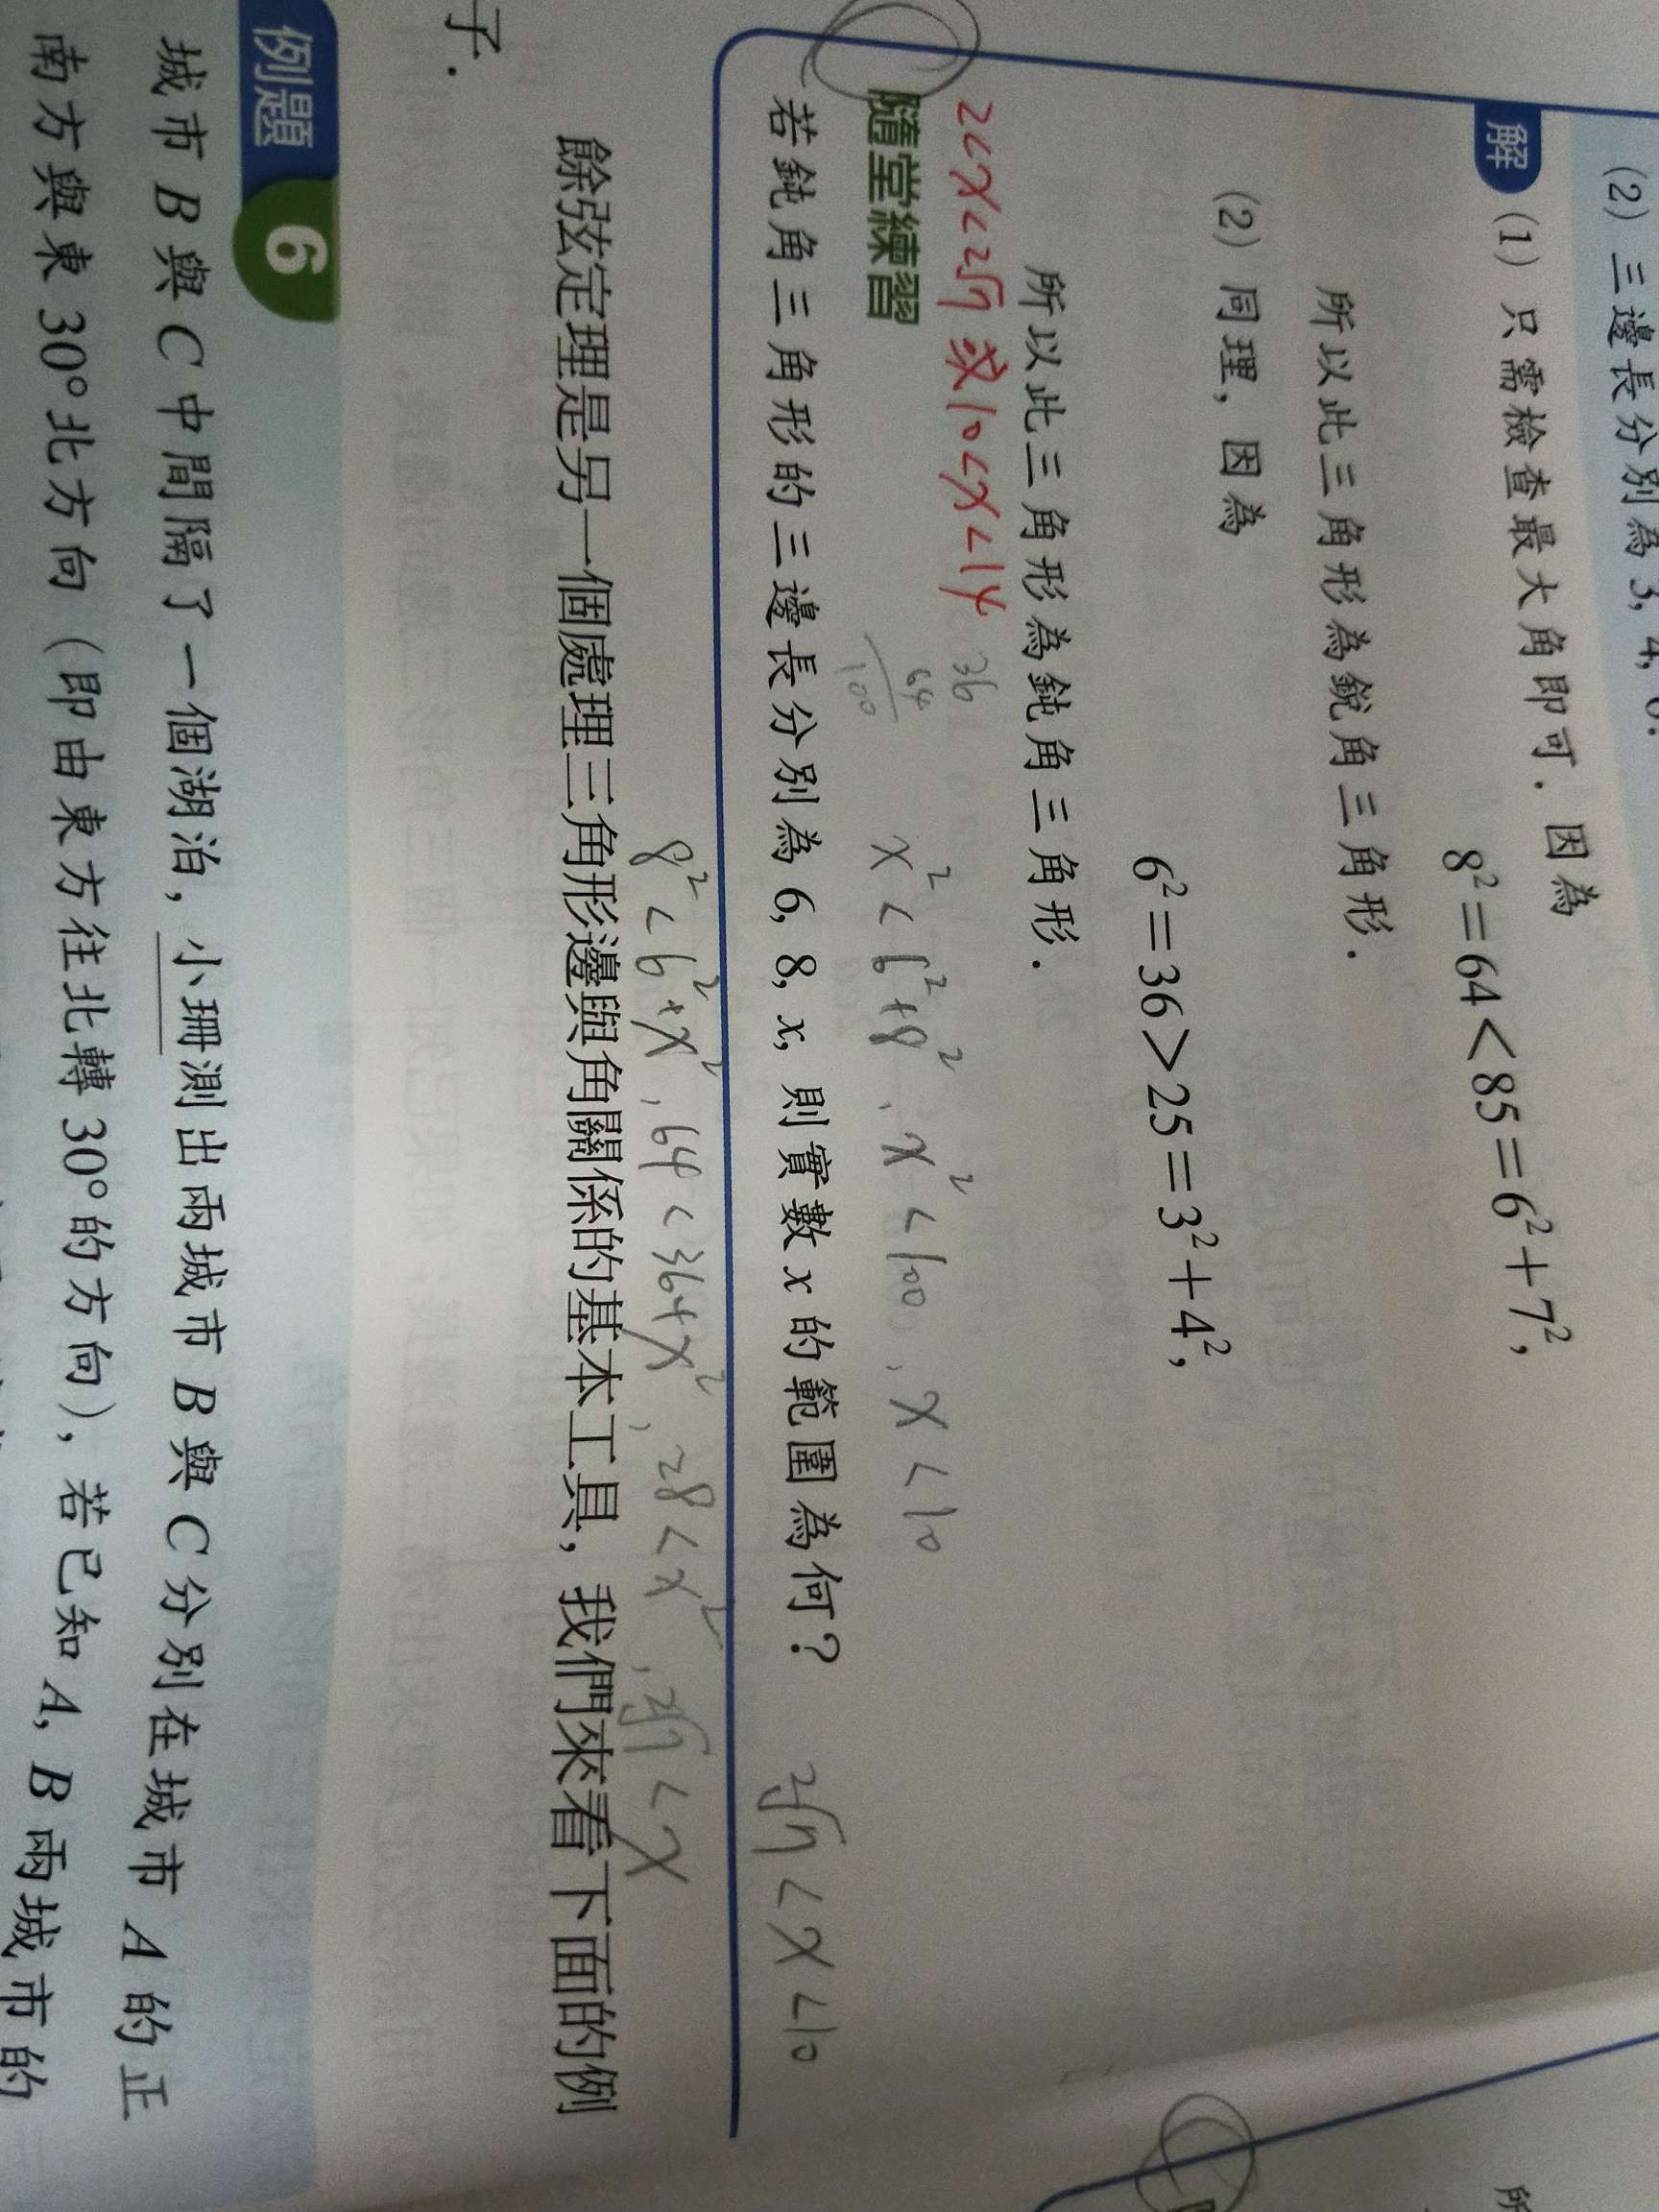 (2) 三邊長分別為 3, 4, 6.
解
(1) 只需檢查最大角即可. 因為
8²=64<85=6²+7²,
所以此三角形為銳角三角形.
(2) 同理, 因為
6²=36>25=3²+4²,
所以此三角形為鈍角三角形.
2<x<2√7 或 10<x<14
36
64
100
隨堂練習
x²<6²+8², x²<100, x<10
若鈍角三角形的三邊長分別為 6, 8, x, 則實數 x 的範圍為何?
2√7<x<10
8²<6²+x², 64<36+x², 28<x², 2√7<x
餘弦定理是另一個處理三角形邊與角關係的基本工具, 我們來看下面的例
子.
例題 6
城市 B 與 C 中間隔了一個湖泊, 小珊測出兩城市 B 與 C 分別在城市 A 的正
南方與東 30°北方向 (即由東方往北轉 30°的方向), 若已知 A, B 兩城市的
所